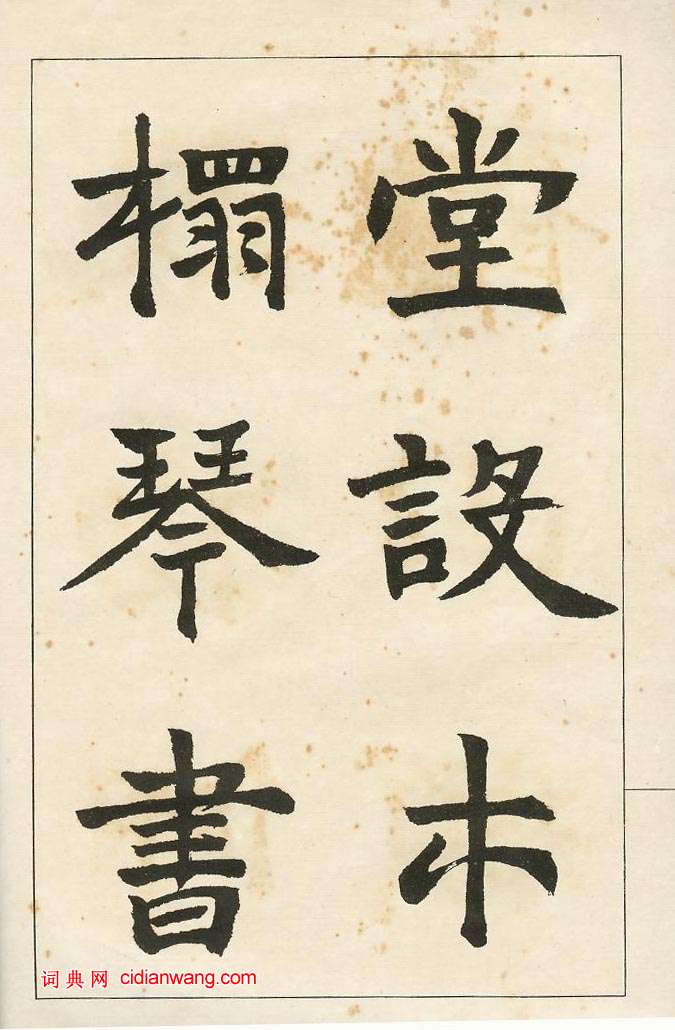 堂設木
榻琴書
词典网 cidianwang.com